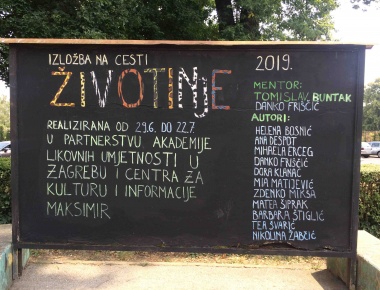 IZLOŽBA NA CESTI
ŽIVOTINJE
REALIZIRANA OD 29.6. DO 22.7.
U PARTNERSTVU AKADEMIJE
LIKOVNIH UMJETNOSTI U
ZAGREBU I CENTRA ZA
KULTURU I INFORMACIJE
MAKSIMIR
2019.
MENTOR:
TOMISLAV BUNTAK
DANKO FRIŠČIĆ
AUTORI:
HELENA BOSNIĆ
ANA DESPOT
MIHAELA ERCEG
DANKO FRIŠČIĆ
DORA KLANAC
MIA MATIJEVIĆ
ZDENKO MIKŠA
MATEA ŠIPRAK
BARBARA ŠTIGLIĆ
TEA ŠVARIĆ
NIKOLINA ŽABČIĆ